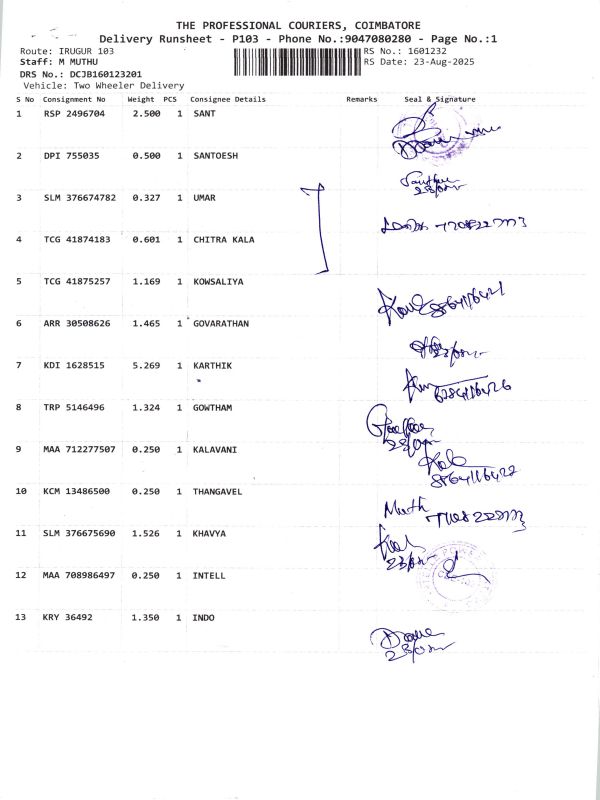 THE PROFESSIONAL COURIERS, COIMBATORE
Delivery Runsheet - P103 - Phone No.:9047080280 - Page No.:1
Route: IRUGUR 103 RS No.: 1601232
Staff: M MUTHU RS Date: 23-Aug-2025
DRS No.: DCJB160123201
Vehicle: Two Wheeler Delivery
S No Consignment No Weight PCS Consignee Details Remarks Seal & Signature
1 RSP 2496704 2.500 1 SANT
2 DPI 755035 0.500 1 SANTOESH
3 SLM 376674782 0.327 1 UMAR
4 TCG 41874183 0.601 1 CHITRA KALA
5 TCG 41875257 1.169 1 KOWSALIYA
6 ARR 30508626 1.465 1 GOVARATHAN
7 KDI 1628515 5.269 1 KARTHIK
8 TRP 5146496 1.324 1 GOWTHAM
9 MAA 712277507 0.250 1 KALAVANI
10 KCM 13486500 0.250 1 THANGAVEL
11 SLM 376675690 1.526 1 KHAVYA
12 MAA 708986497 0.250 1 INTELL
13 KRY 36492 1.350 1 INDO